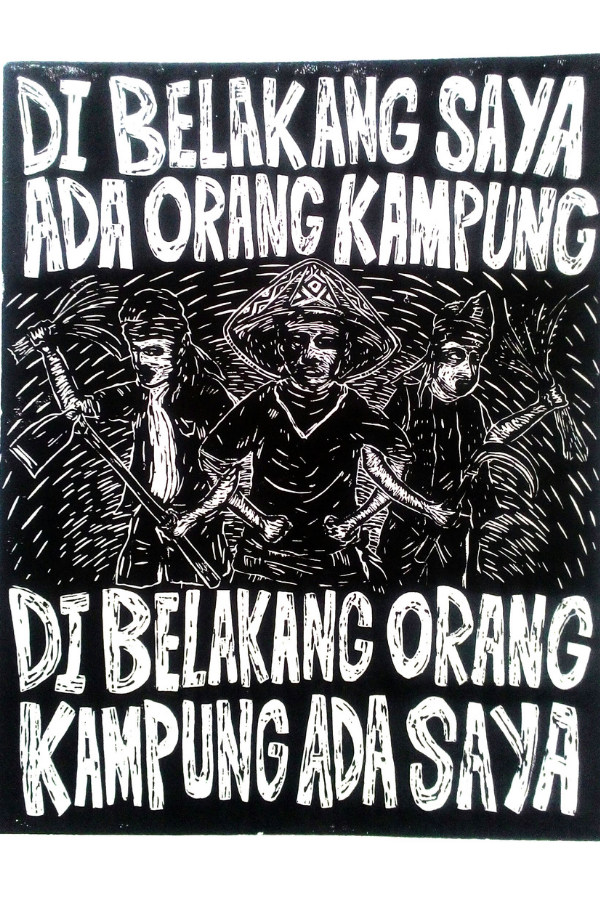 DI BELAKANG SAYA
ADA ORANG KAMPUNG
DI BELAKANG ORANG
KAMPUNG ADA SAYA